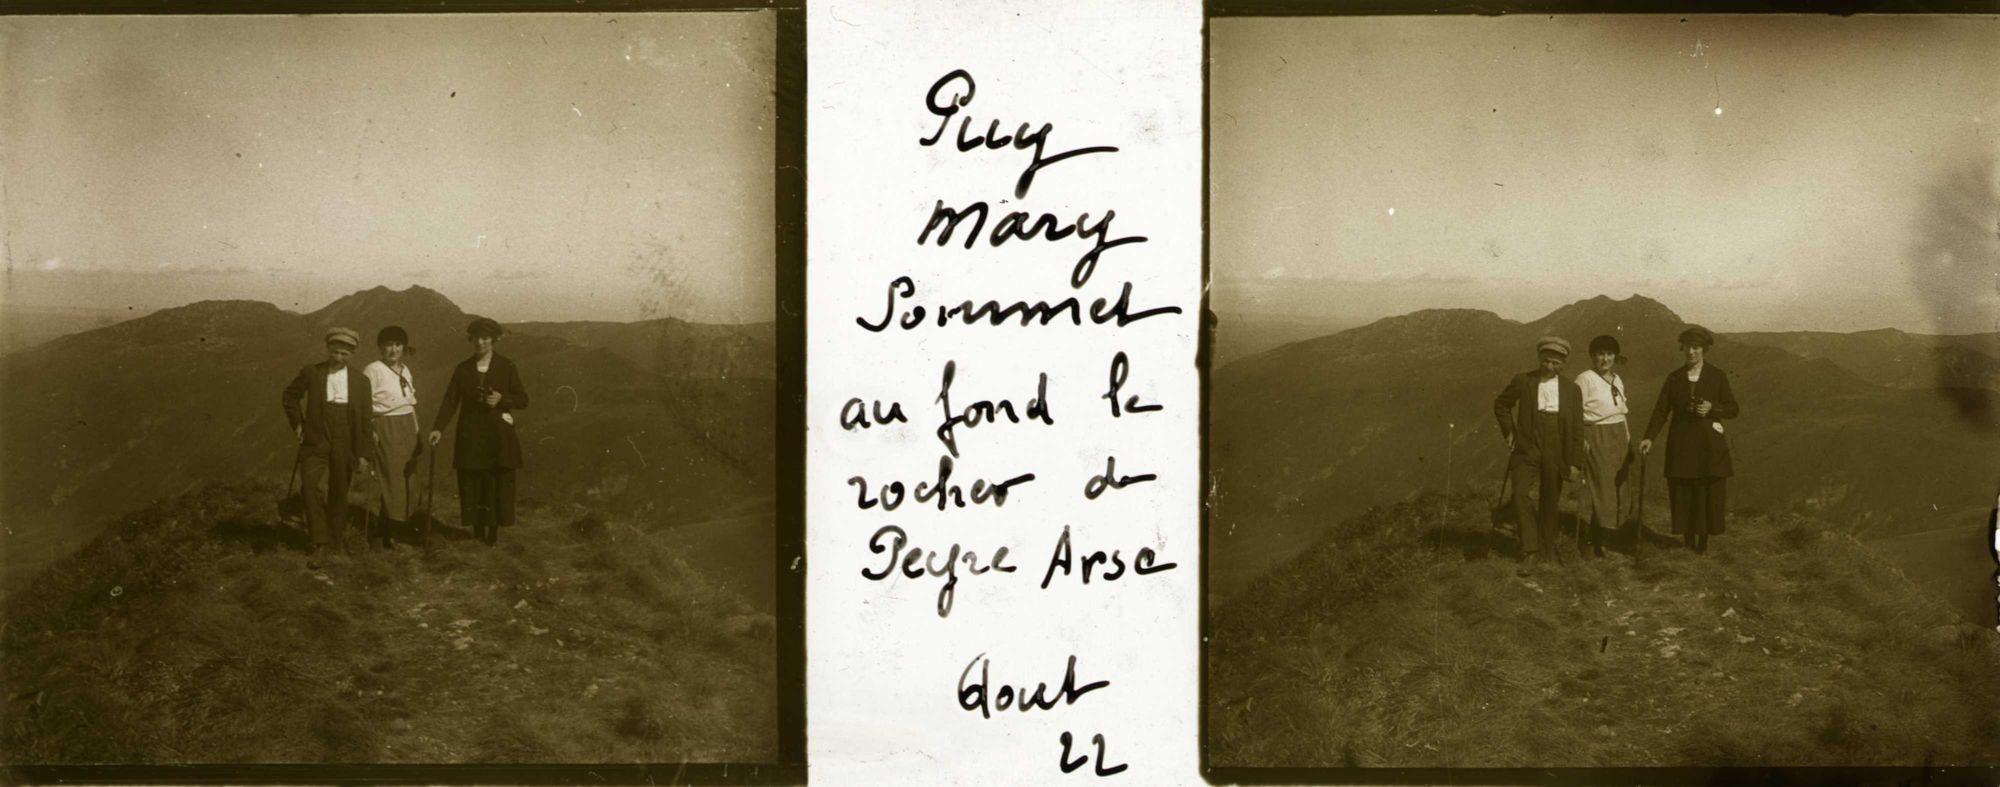 Puy
Mary
Sommet
au fond le
rocher de
Peyre Arse
Aout
22